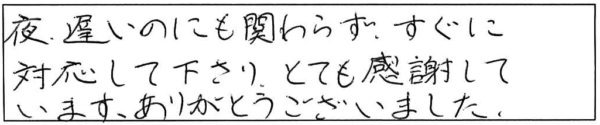 夜、遅いのにも関わらず、すぐに
対応して下さり、とても感謝して
います、ありがとうございました。